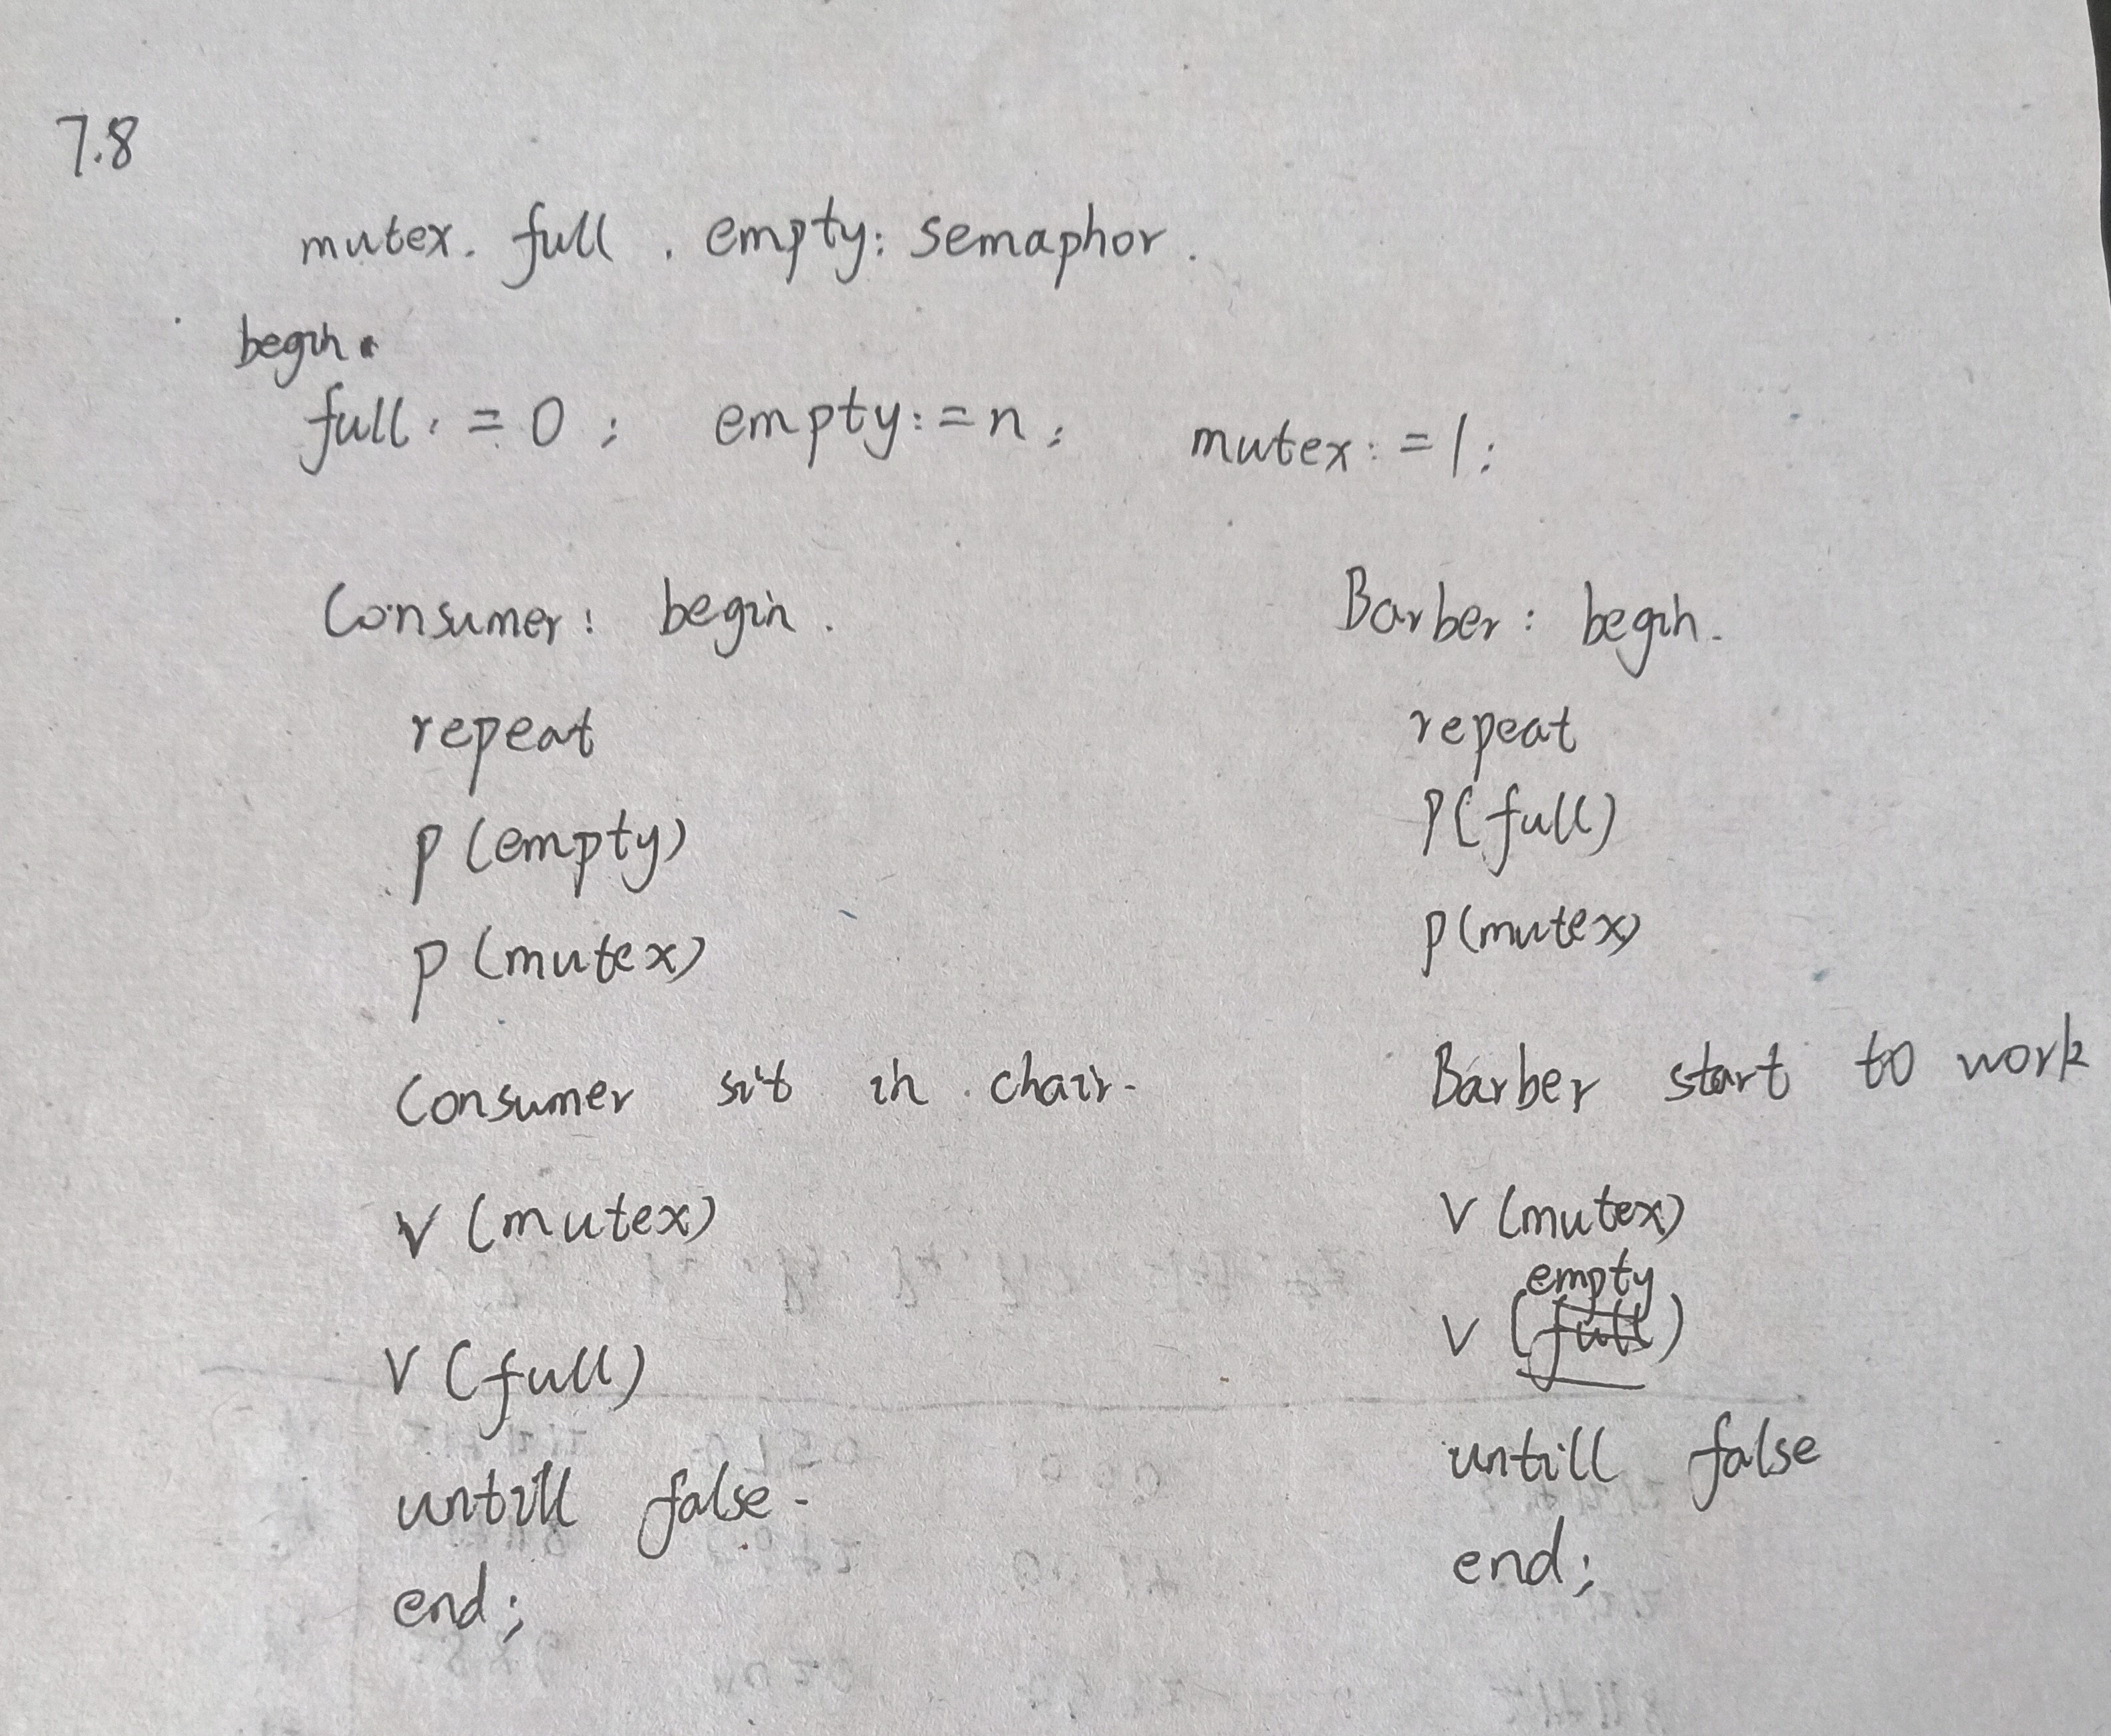 7.8
mutex. full . empty: semaphor.
begin.
full := 0 ; empty := n ; mutex := 1 ;
Consumer : begin .
repeat
p (empty)
p (mutex)
Consumer sit in chair.
V (mutex)
V (full)
untill false.
end ;
Barber : begin.
repeat
P(full)
p(mutex)
Barber start to work
V (mutex)
V (empty)
untill false
end ;